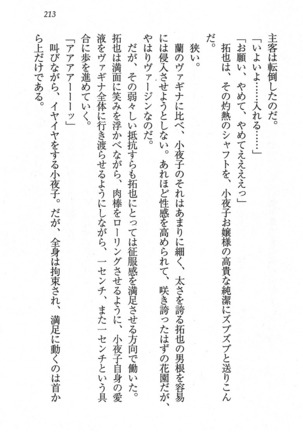 213
主客は転倒したのだ。
「いよいよ……入れる……」
「お願い、やめて、やめてええええっ」
拓也は、その灼熱のシャフトを、小夜子お嬢様の高貴な純潔にズブズブと送りこん
だ。
狭い。
蘭のヴァギナに比べ、小夜子のそれはあまりに細く、太さを誇る拓也の男根を容易
には侵入させようとしない。あれほど性感を高められて、咲き誇ったはずの花園だが、
やはりヴァージンなのだ。
だが、その弱々しい抵抗すらも拓也にとっては征服感を満足させる方向で働いた。
拓也は満面に笑みを浮かべながら、肉棒をローリングさせるように、小夜子自身の愛
液をヴァギナ全体に行き渡らせるようにしながら、一センチ、また一センチという具
合に歩を進めていく。
「アアアアーーーッ」
叫びながら、イヤイヤをする小夜子。だが、全身は拘束され、満足に動くのは首か
ら上だけである。